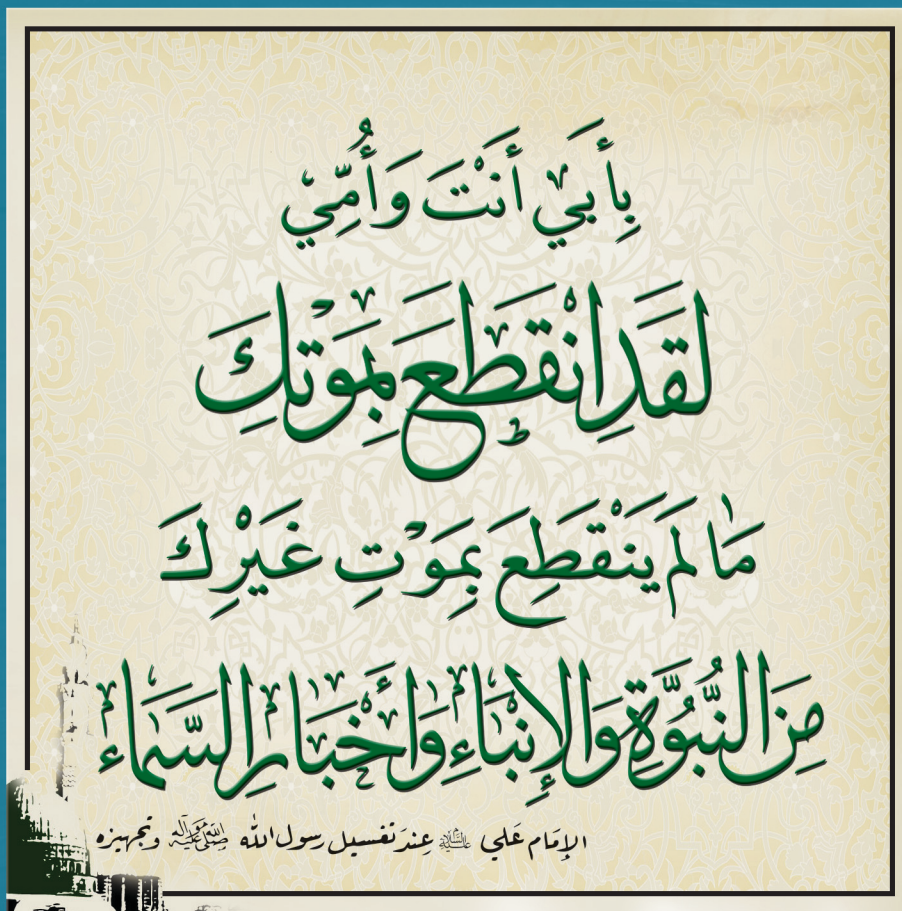 بِأَبَي أَنْتَ وَأُمِّي
لَقَدِ انْقَطَعَ بِمَوْتِكَ
مَا لَمْ يَنْقَطِعْ بِمَوْتِ غَيْرِكَ
مِنَ النُّبُوَّةِ وَالإِنْبَاءِ وَأَخْبَارِ السَّمَاءِ
الإمَام عَلي عليه السلام عِندَ تغسيل رسول الله صلى الله عليه وآله وتجهيزه